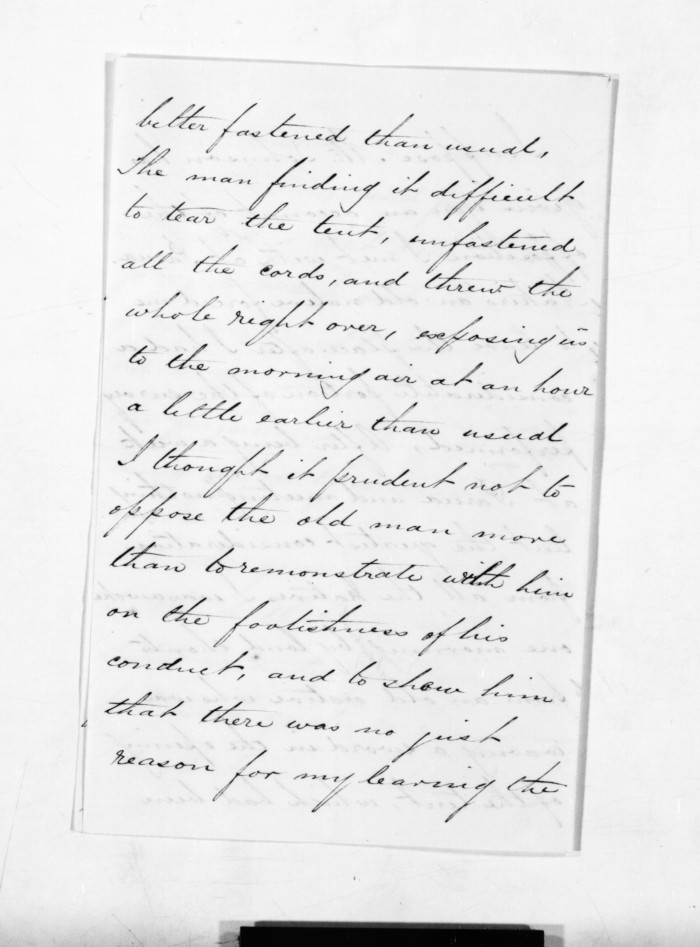 better fastened than usual,
The man finding it difficult
to tear the tent, unfastened
all the cords, and threw the
whole right over, exposing us
to the morning air at an hour
a little earlier than usual
I thought it prudent not to
oppose the old man more
than to remonstrate with him
on the foolishness of his
conduct, and to show him
that there was no just
reason for my leaving the